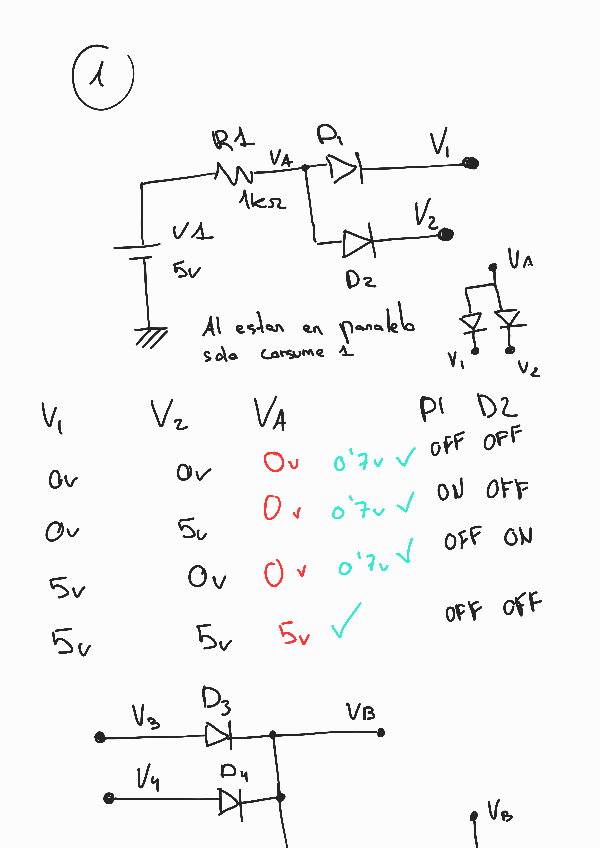 1
R1 VA D1 V1
1kΩ
V1 V2
5v D2
VA
Al estar en paralelo
solo consume 1
V1 V2
V1 V2 VA D1 D2
0v 0v 0v 0'7v ✓ OFF OFF
0v 5v 0v 0'7v ✓ ON OFF
5v 0v 0v 0'7v ✓ OFF ON
5v 5v 5v ✓ OFF OFF
V3 D3 VB
V4 D4
VB